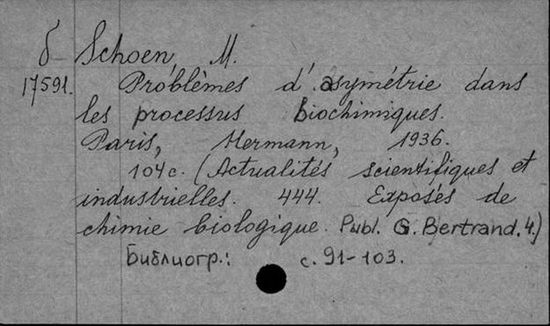 б Schoen, M.
17591. Problèmes d'asymétrie dans
les processus biochimiques.
Paris, Hermann, 1936.
104c. (Actualités scientifiques et
industrielles. 444. Exposés de
chimie biologique. Publ. G. Bertrand. 4.)
Библиогр.: с. 91-103.